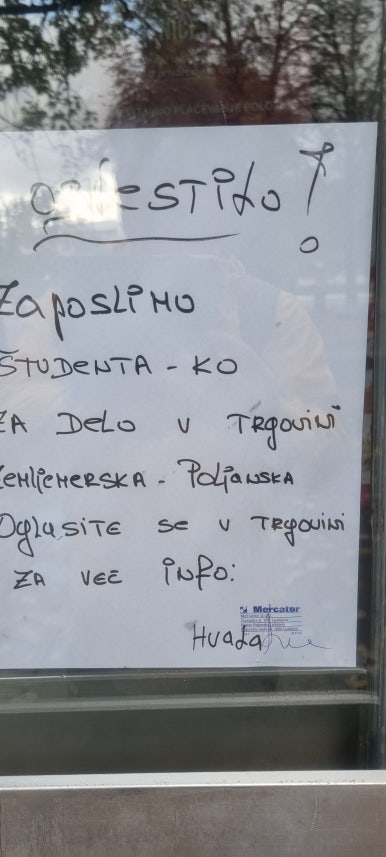 obvestilo!
Zaposlimo
ŠTUDENTA - KO
ZA DELO V TRGOVINI
ZEMLJEMERSKA - POLJANSKA
OGLASITE SE V TRGOVINI
ZA VEČ INFO:
Mercator
HVALA